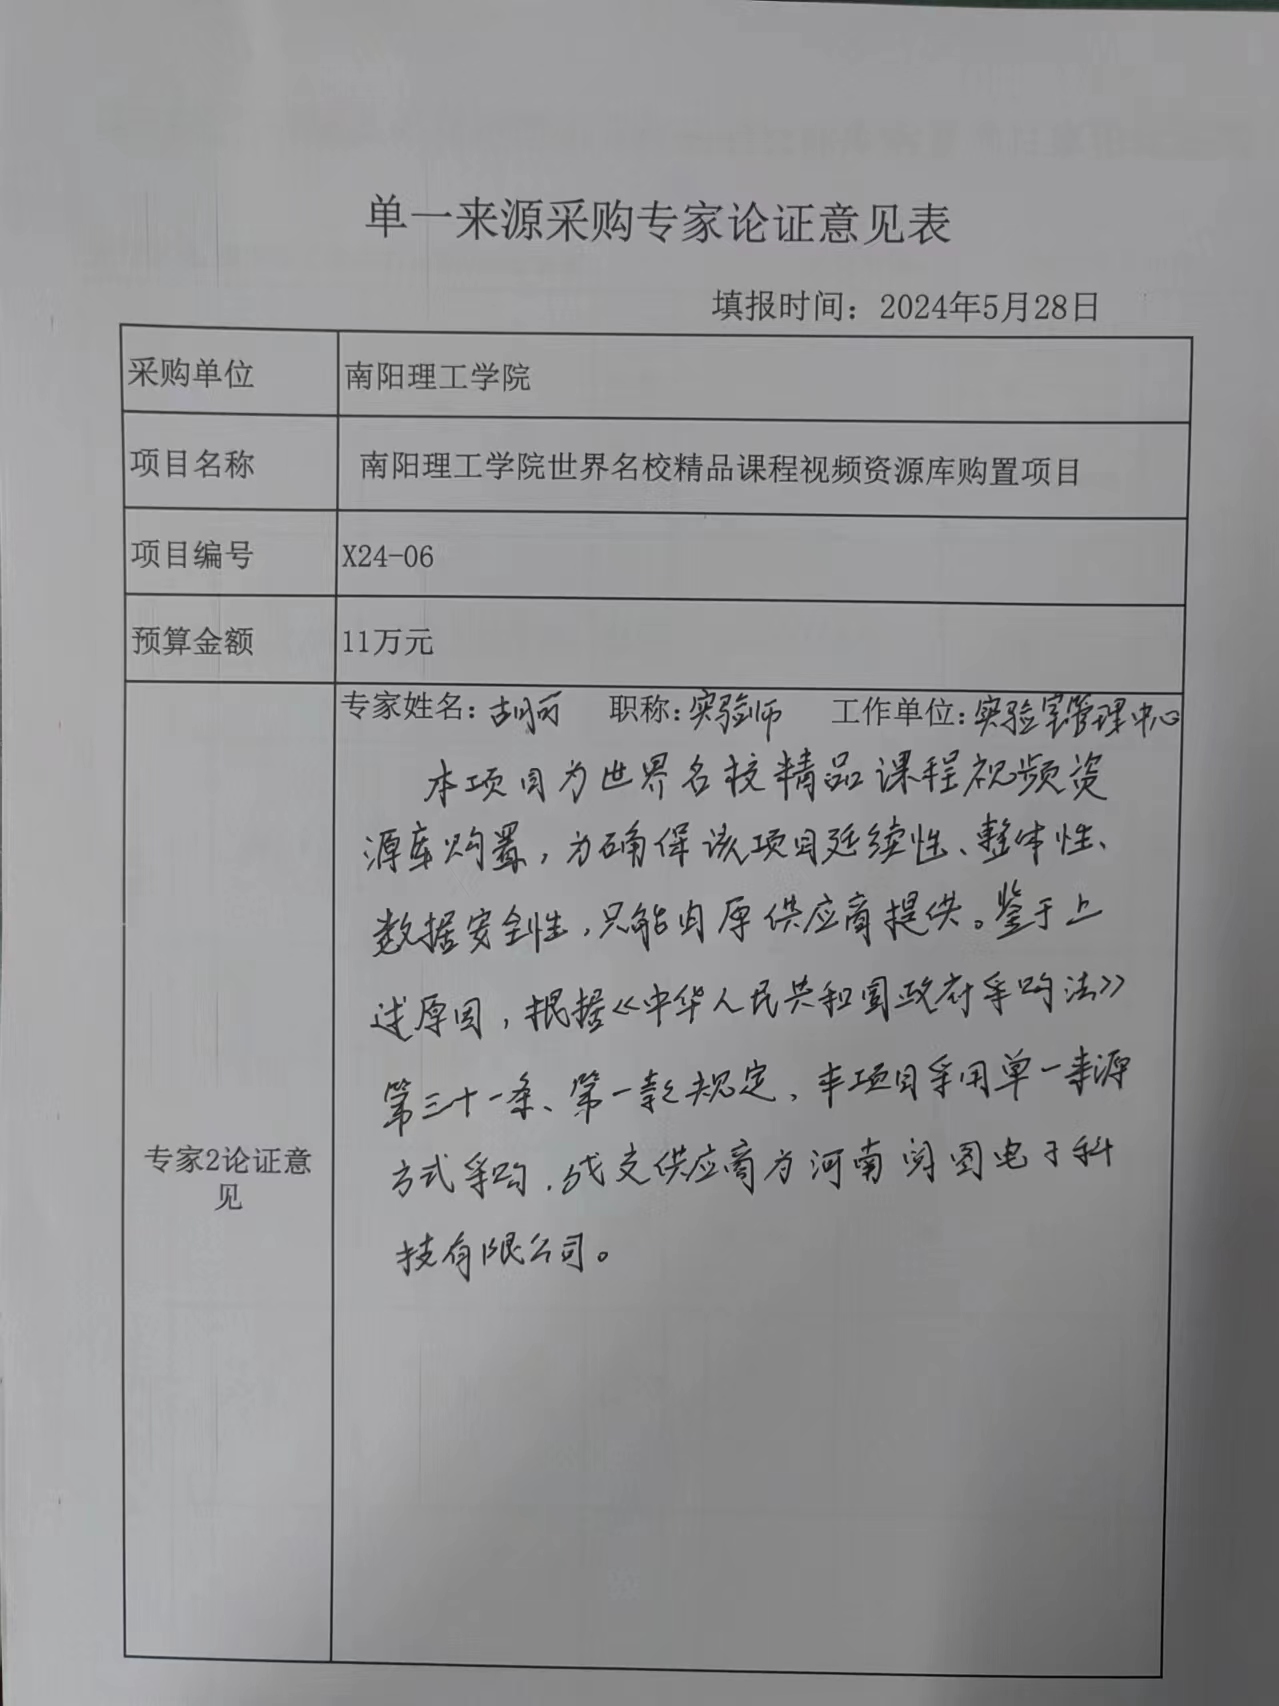 单一来源采购专家论证意见表
填报时间：2024年5月28日
采购单位 南阳理工学院
项目名称 南阳理工学院世界名校精品课程视频资源库购置项目
项目编号 X24-06
预算金额 11万元
专家姓名：胡丽 职称：实验师 工作单位：实验室管理中心
本项目为世界名校精品课程视频资
源库购置，为确保该项目延续性、整体性、
数据安全性，只能由原供应商提供。鉴于上
述原因，根据《中华人民共和国政府采购法》
第三十一条、第一款规定，本项目采用单一来源
方式采购，成交供应商为河南阅图电子科
技有限公司。
专家2论证意
见